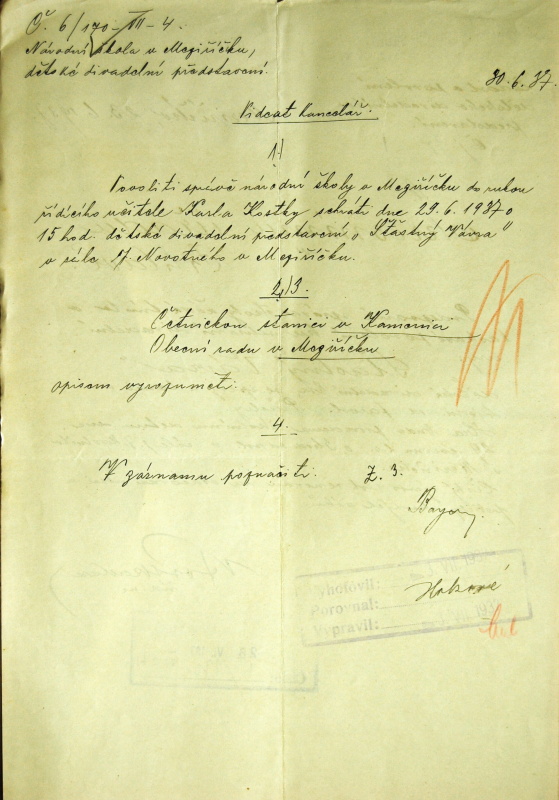 Č. 6/170-VII-4.
Národní škola v Meziříčku,
dětské divadelní představení.
30.6.37.
Videat kancelář.
1./
Povoliti správě národní školy v Meziříčku do rukou
řídícího učitele Karla Kostky sehráti dne 29.6.1937 o
15 hod. dětské divadelní představení „Šťastný Vávra"
v sále Novotného v Meziříčku.
2/3.
Četnickou stanici v Kamenici
Obecní radu v Meziříčku
opisem vyrozuměti.
4.
V záznamu poznačiti. Z. 3.
Vyhotovil:
Porovnal:
Vypravil: